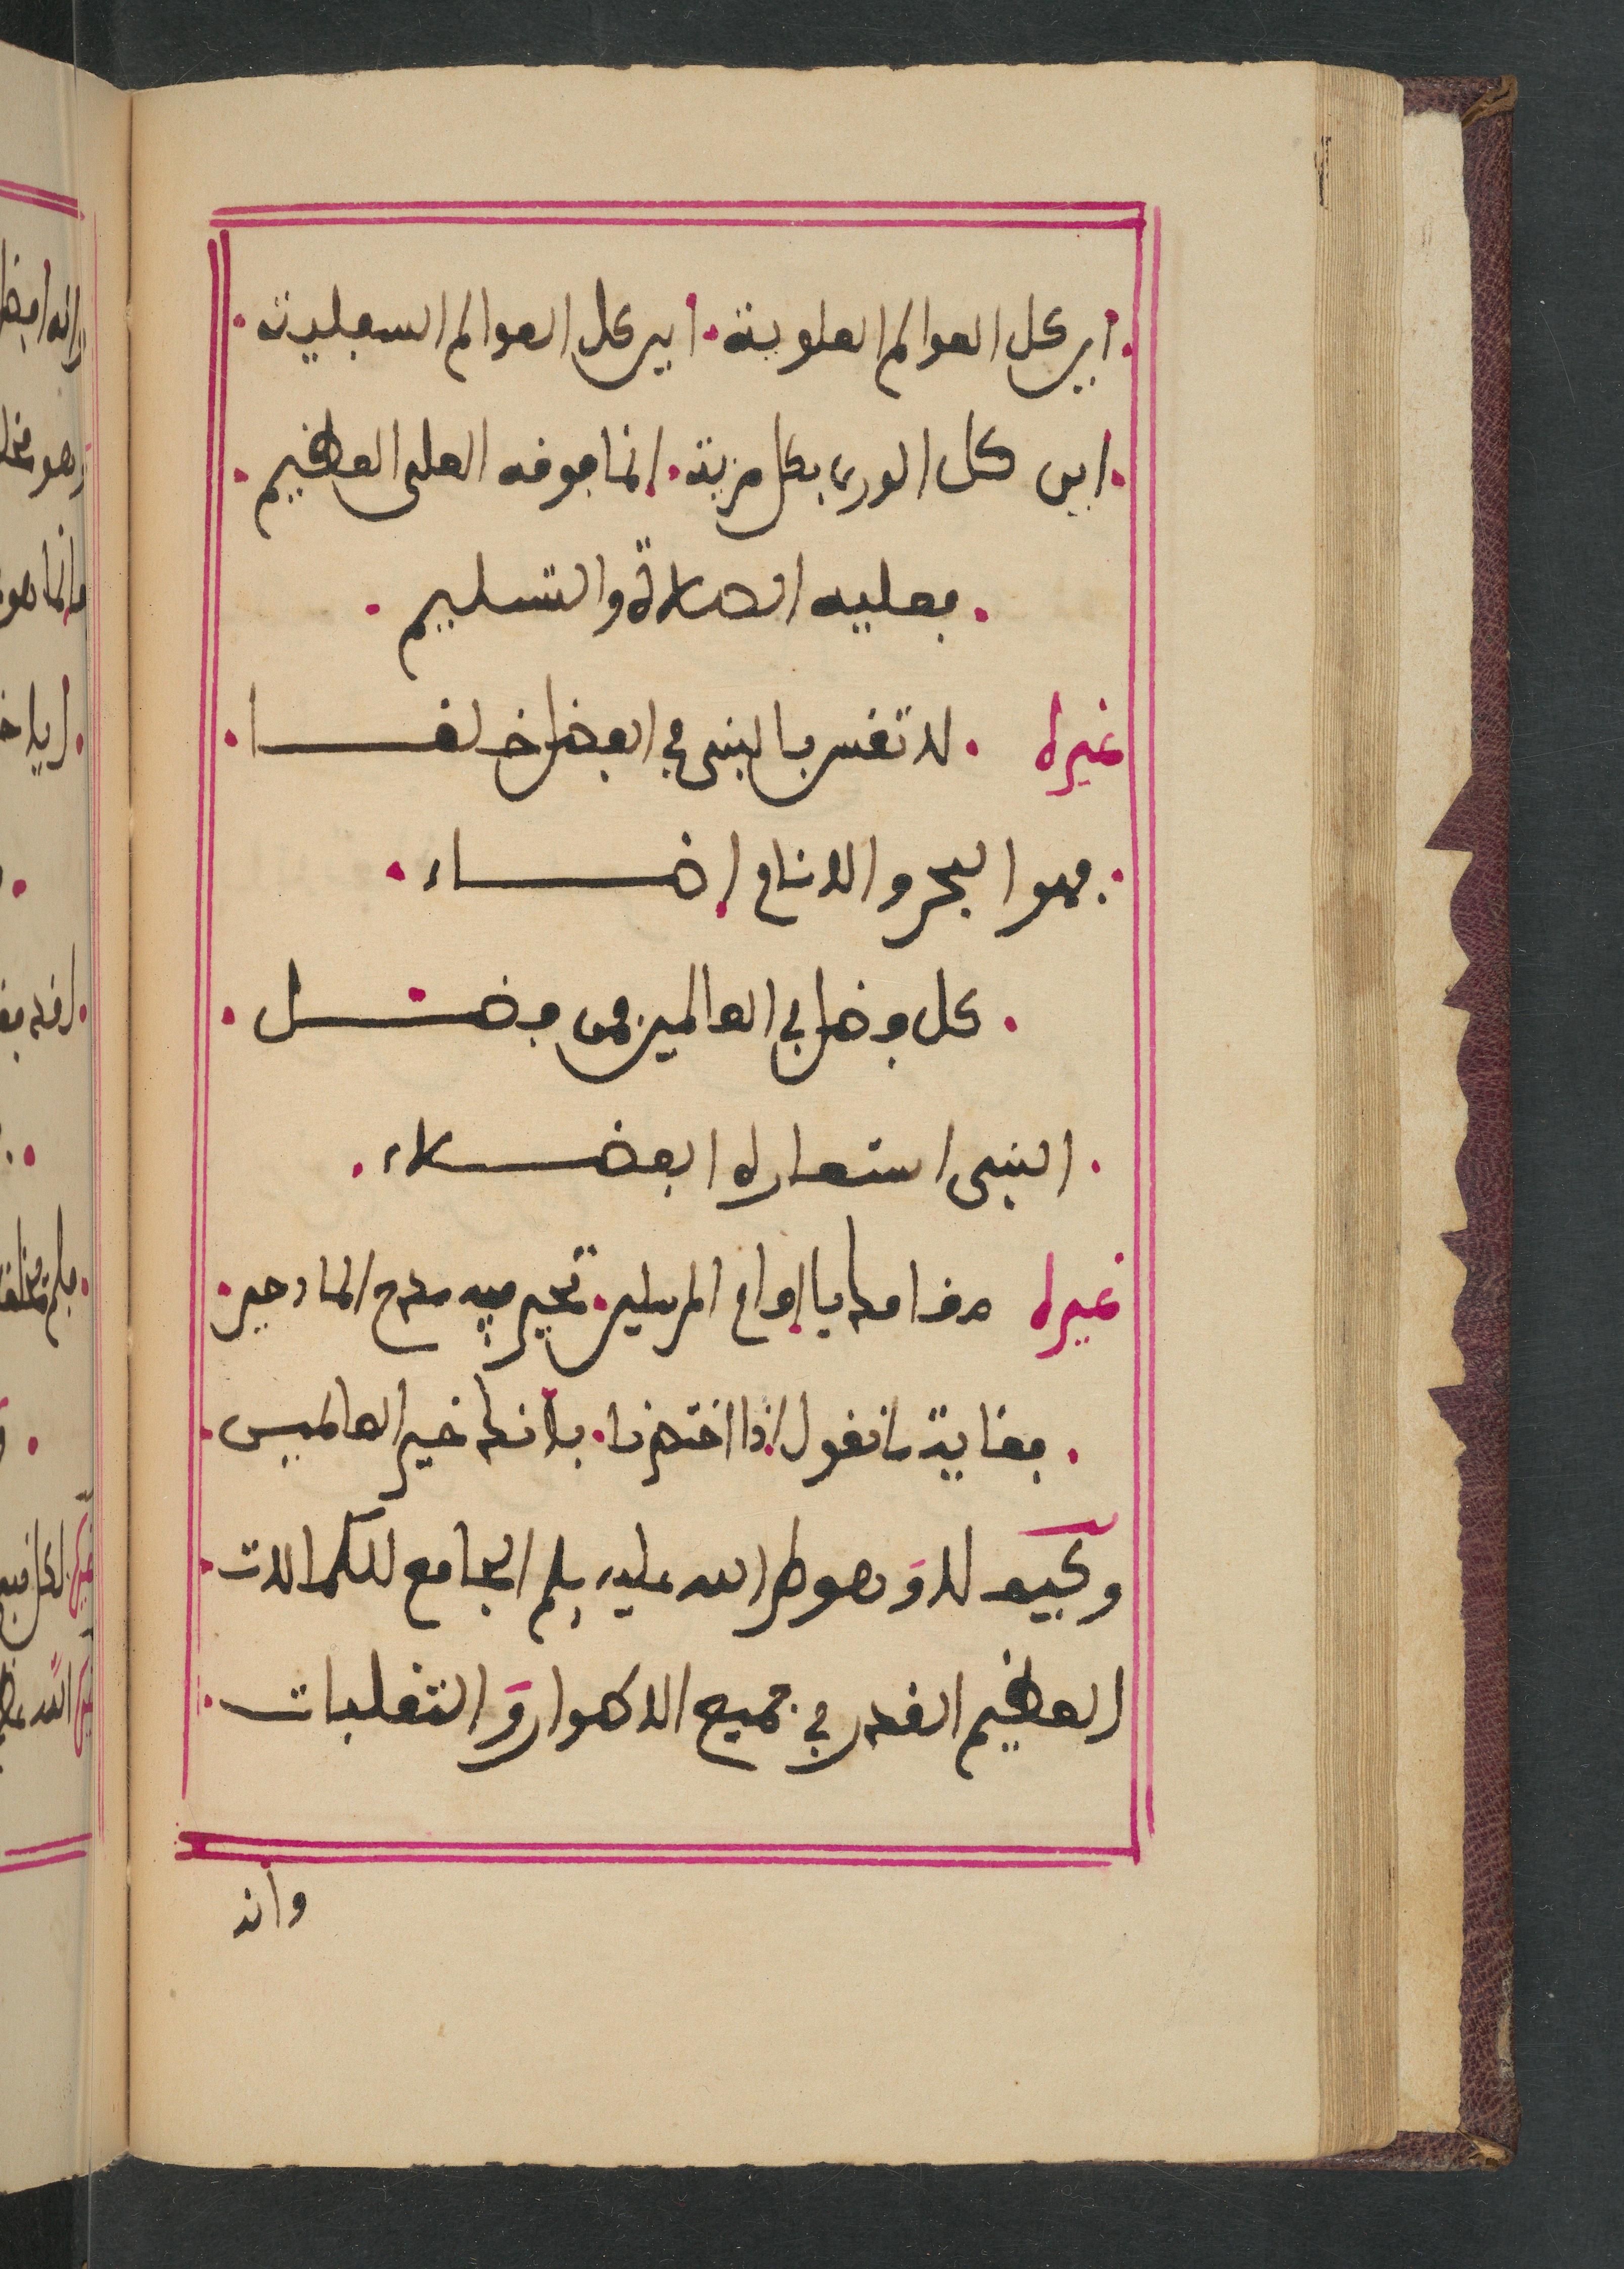 اين كل العوالم العلوية. اين كل العوالم السفلية.
اين كل الورى بكل مزية. انما فوقه العلى العظيم.
فعليه الصلاة والتسليم.
غيره . لا تقس بالنبى في الفضل خلقـــا.
. فهو البحر والانام إضـــاء.
. كل فضل في العالمين فمن فضـــل.
. النبى استعاره الفضـــلاء.
غيره مقامك ياإمام المرسلين. تحير فيه مدح المادحين.
. فغاية ما نقول إذا اختصرنا. بأنك خير العالمين.
وكيف لا وَهو صلى الله عليه وسلم الجامع للكمالات.
العظيم القدر في جميع الاطوار وَالتقلبات.
وانه